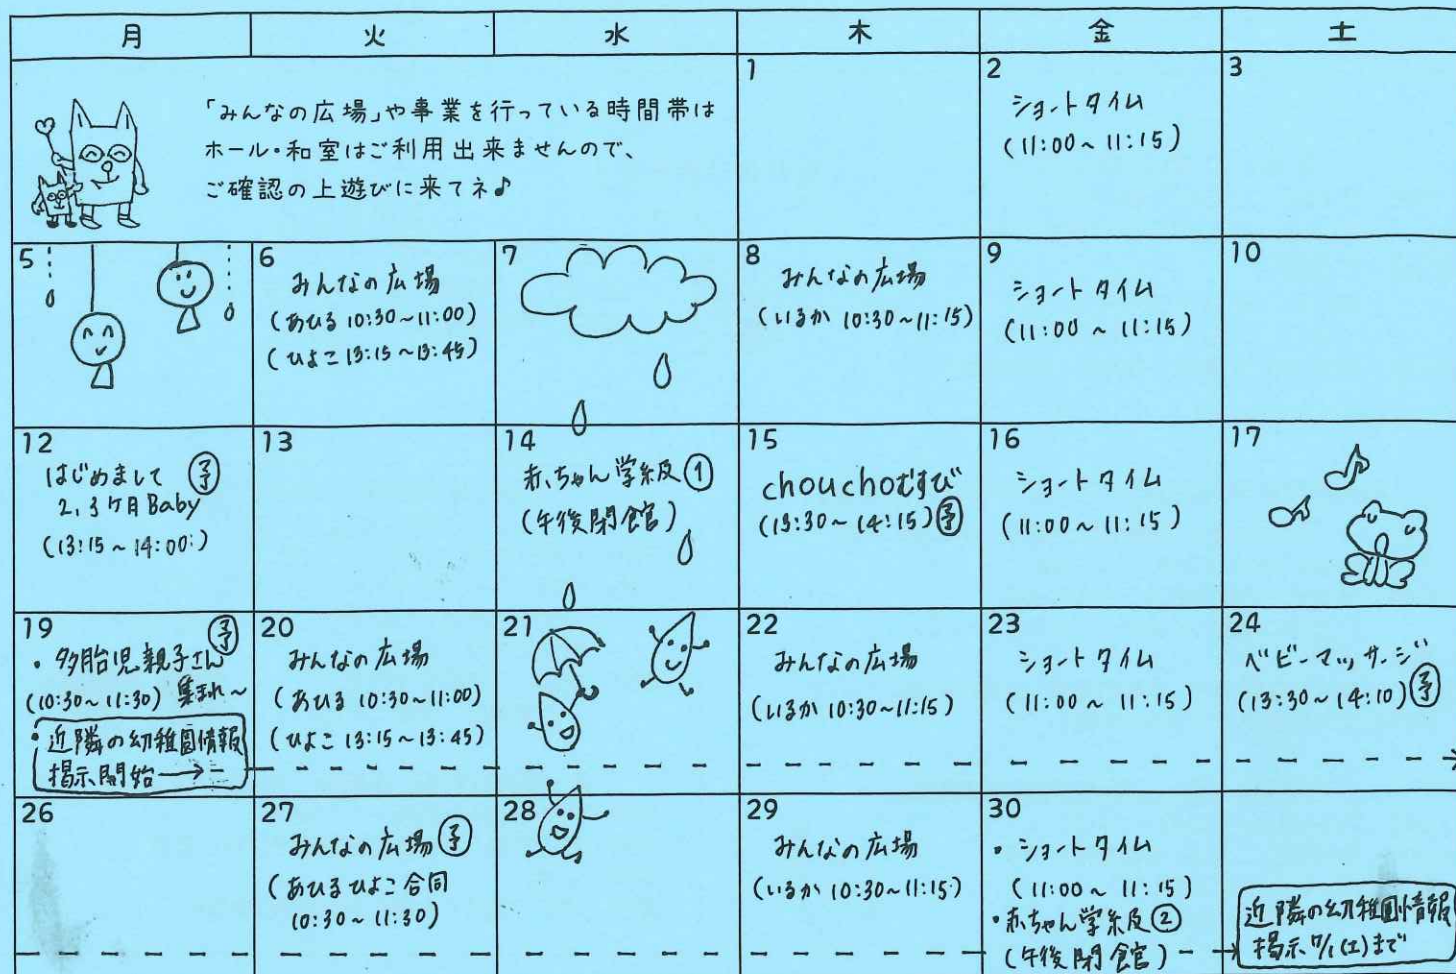 月 火 水 木 金 土
「みんなの広場」や事業を行っている時間帯は
ホール・和室はご利用出来ませんので、
ご確認の上遊びに来てネ♪
1
2
ショートタイム
(11:00~11:15)
3
5
6
みんなの広場
(あひる 10:30~11:00)
(ひよこ 13:15~13:45)
7
8
みんなの広場
(いるか 10:30~11:15)
9
ショートタイム
(11:00~11:15)
10
12
はじめまして 予
2,3ヶ月Baby
(13:15~14:00)
13
14
赤ちゃん学級①
(午後閉館)
15
chouchoむすび
(13:30~14:15) 予
16
ショートタイム
(11:00~11:15)
17
19
予
・多胎児親子さん
(10:30~11:30) 集まれ~
・近隣の幼稚園情報
掲示開始→
20
みんなの広場
(あひる 10:30~11:00)
(ひよこ 13:15~13:45)
21
22
みんなの広場
(いるか 10:30~11:15)
23
ショートタイム
(11:00~11:15)
24
ベビーマッサージ
(13:30~14:10) 予
26
27
みんなの広場 予
(あひるひよこ合同
10:30~11:30)
28
29
みんなの広場
(いるか 10:30~11:15)
30
・ショートタイム
(11:00~11:15)
・赤ちゃん学級②
(午後閉館)
近隣の幼稚園情報
掲示7/1(土)まで